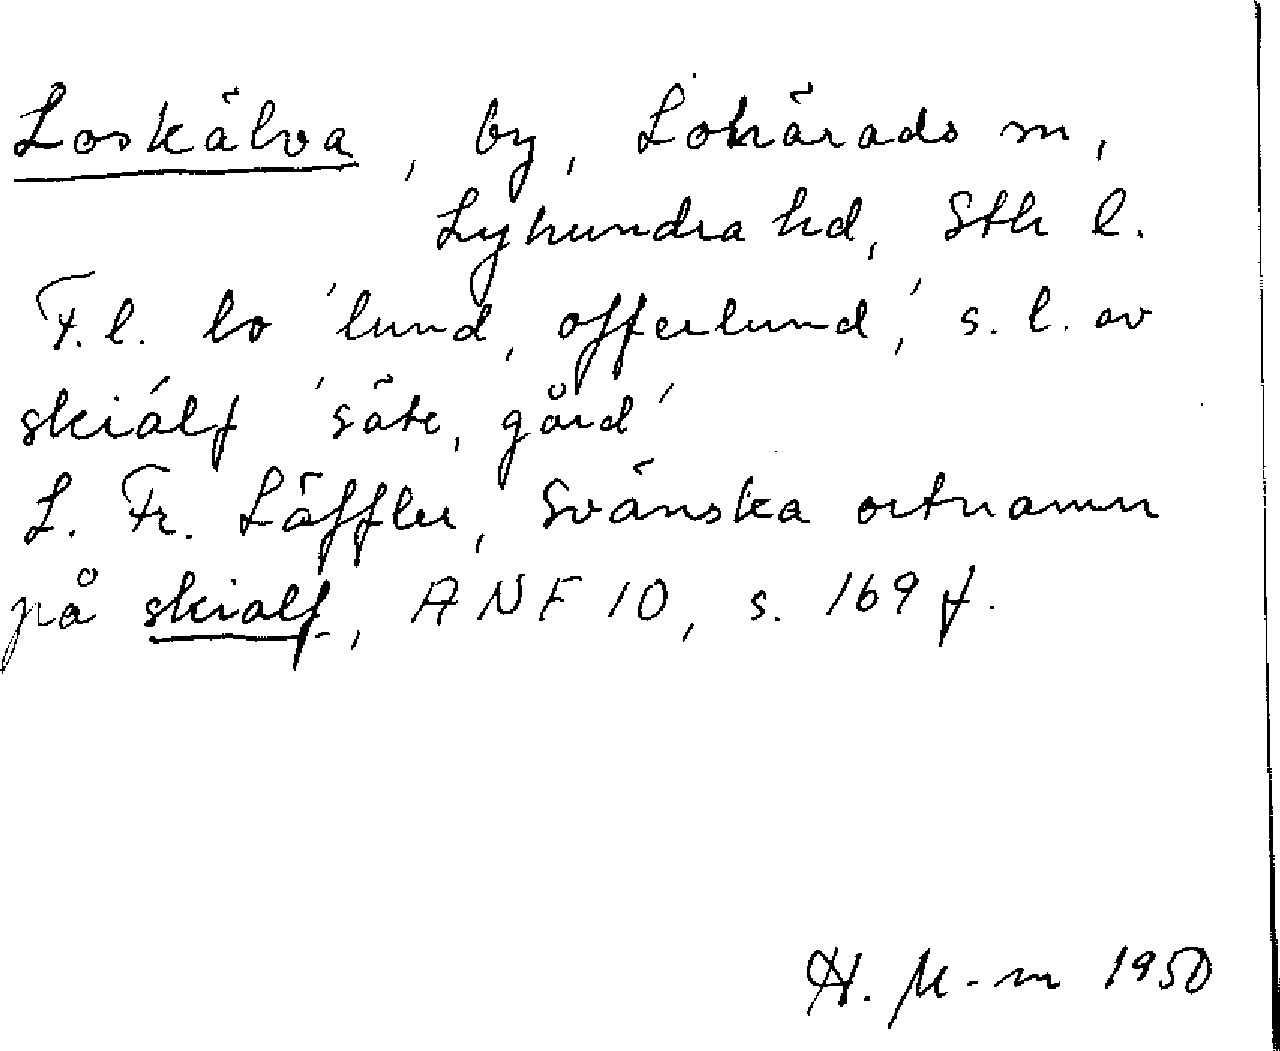 Loskälva, by, Lohärads sn,
Lyhundra hd, Sth l.
F.l. lo 'lund, offerlund', s.l. av
skiálf 'säte, gård'
L. Fr. Läffler, Svänska ortnamn
på skialf, ANF 10, s. 169 f.
H. M-m 1950